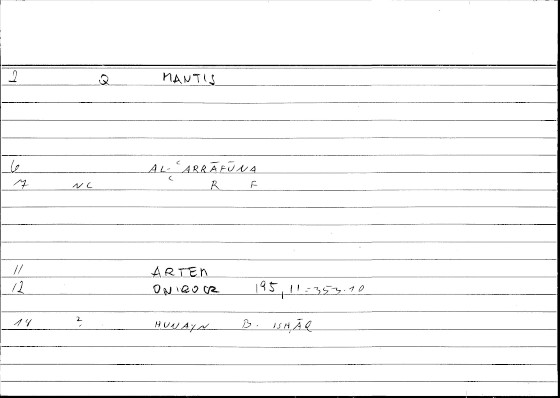 2 Q MANTIS
6 AL-ʿARRĀFŪNA
7 NC ʿ R F
11 ARTEM
12 ONIROCR 195,11=353.10
14 ? HUNAYN B. ISHĀQ